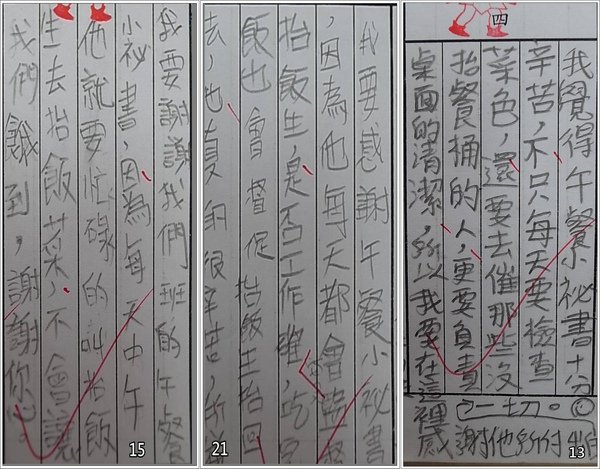 我要謝謝我們班的午餐
小祕書,因為每天中午
他就要忙碌的叫抬飯
生去抬飯菜,不會讓
我們餓到,謝謝你
15
我要感謝午餐小祕書
,因為他每天都會監督
抬飯生,是否工作確,吃完
飯也會督促抬飯生抬回
去,也真的很辛苦,所
21
四
我覺得午餐小祕書十分
辛苦,不只每天要檢查
菜色,還要去催那些沒
抬餐桶的人,更要負責
桌面的清潔,所以我要在這裡感
謝他所付
一切。
13